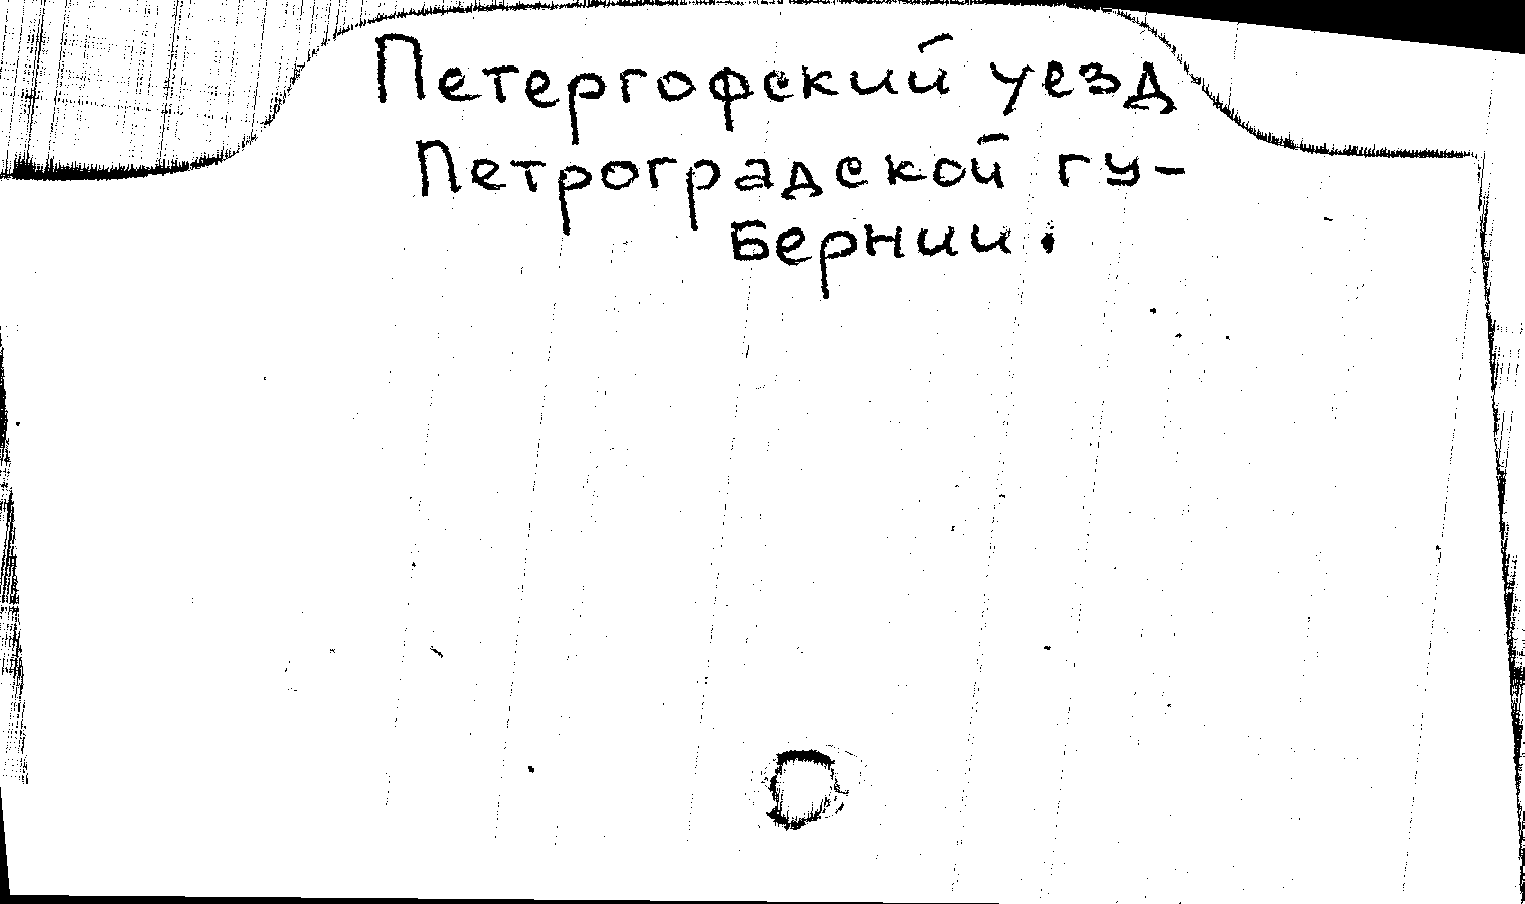 Петергофский уезд
Петроградской гу-
бернии.